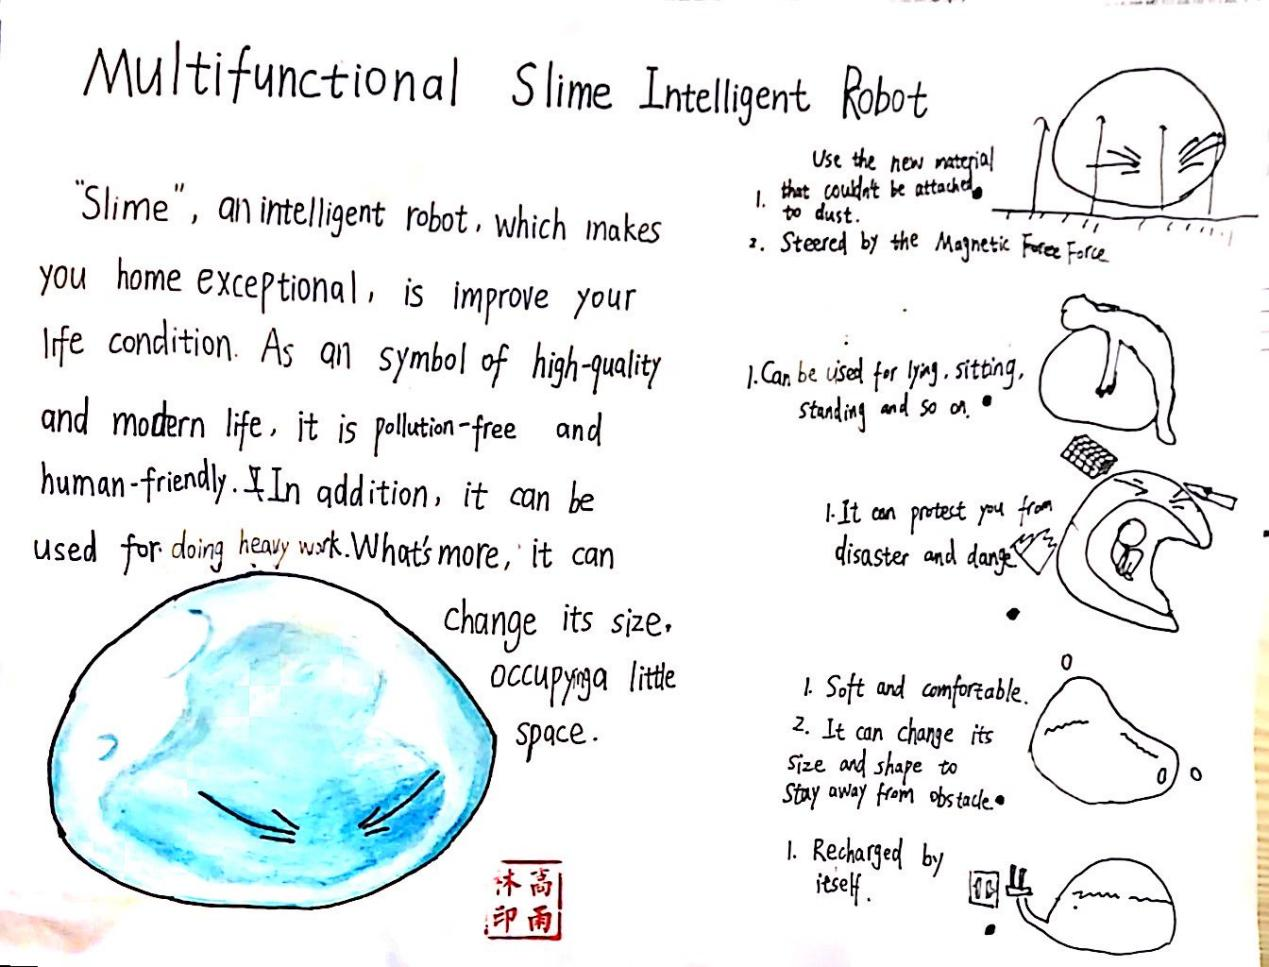 Multifunctional Slime Intelligent Robot
"Slime", an intelligent robot, which makes
you home exceptional, is improve your
life condition. As an symbol of high-quality
and modern life, it is pollution-free and
human-friendly. In addition, it can be
used for doing heavy work. What's more, it can
change its size,
occupying a little
space.
Use the new material
1. that couldn't be attached
to dust.
2. Steered by the Magnetic Force Force
1. Can be used for lying, sitting,
standing and so on.
1. It can protect you from
disaster and dange
1. Soft and comfortable.
2. It can change its
size and shape to
stay away from obstacle.
1. Recharged by
itself.
沐高
印雨